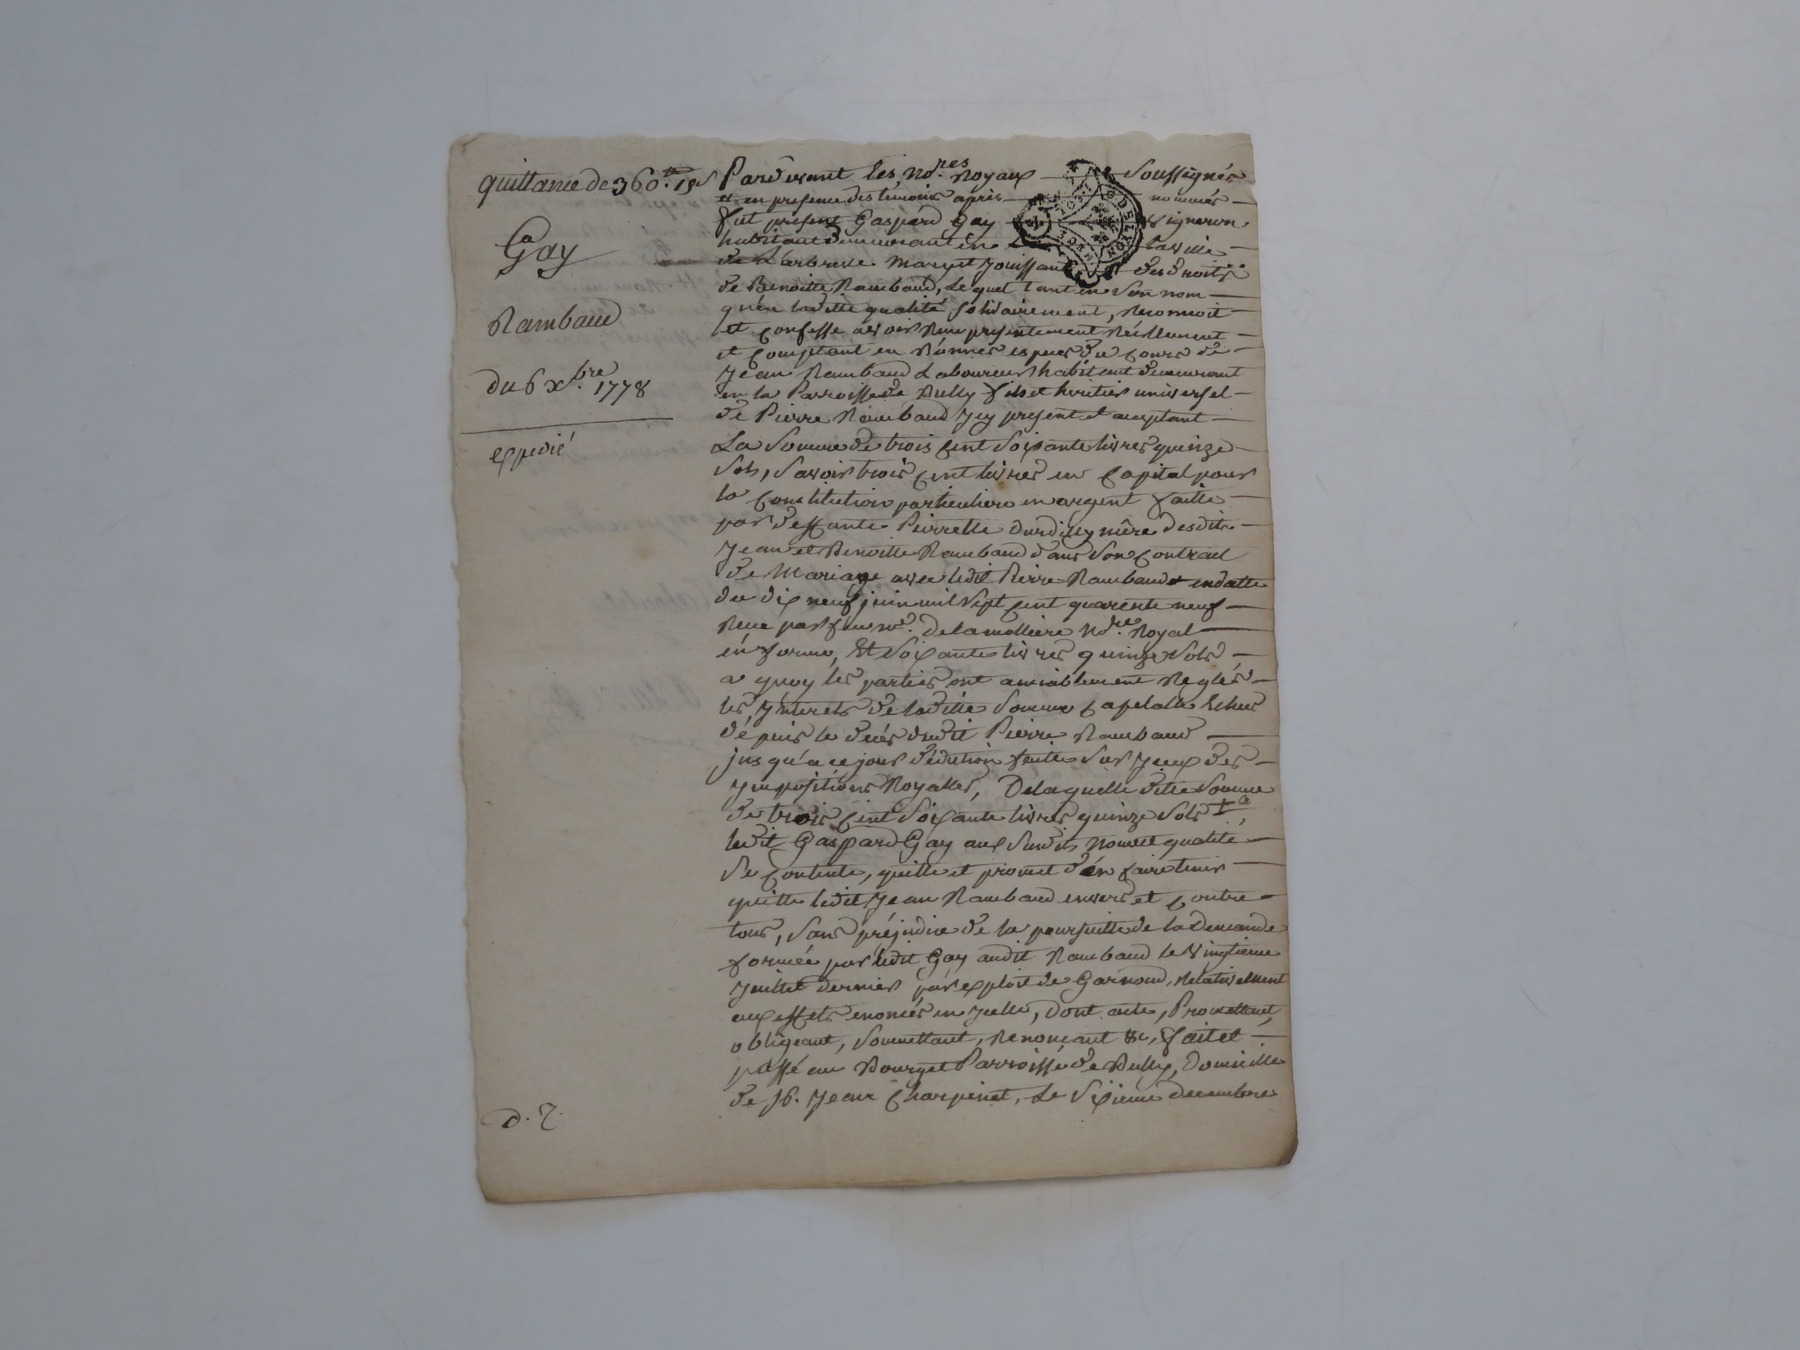 quittance de 360.tt 15 s
Gay
a
Rambaud
du 6 xbre. 1778
expedié
Pardevant les No.res Royaux soussignés
et en presence des temoins après nommés
fut présent Gaspard Gay vigneron
habitant demeurant en la ville
de Larbresle mary et jouissant des droits
de Benoitte Rambaud, lequel tant en son nom
qu'en laditte qualité solidairement, reconnoit
et confesse avoir reçu presentement réellement
et comptant en bonnes especes du cours de
Jean Rambaud Laboureur habitant demeurant
en la Parroisse de Bully fils et heritier universel
de Pierre Rambaud Icy present et acceptant
La somme de trois cent soixante livres quinze
sols, savoir trois cent livres en capital pour
la constitution particuliere en argent faitte
par deffunte Pierrette Durdilly mère desdits
Jean et Benoitte Rambaud dans son contract
de Mariage avec ledit Pierre Rambaud en datte
du dix neuf juin mil sept cent quarente neuf
reçu par feu me. Delamolliere No.re Royal
en forme, Et soixante livres quinze sols
a quoy les parties ont amiablement reglés
les Interets de laditte somme capitalle Echus
depuis le décès dudit Pierre Rambaud
jusqu'à ce jour déduction faitte sur Iceux des
Impositions Royalles, De laquelle ditte somme
de trois cent soixante livres quinze sols
ledit Gaspard Gay aux susdits nom et qualité
se contente, quitte et promet d'en faire tenir
quitte ledit Jean Rambaud envers et contre
tous, sans préjudice de la poursuitte de la Demande
formée par ledit Gay audit Rambaud le vingtieme
Juillet dernier par exploit de Garnoud, relativement
aux effets enoncés en Icelle, Dont acte, Promettant,
obligeant, soumettant, renonçant &c, fait et
passé au Bourg et Parroisse de Bully, Domicille
de sr. Jean Charpenet, Le sixieme decembre